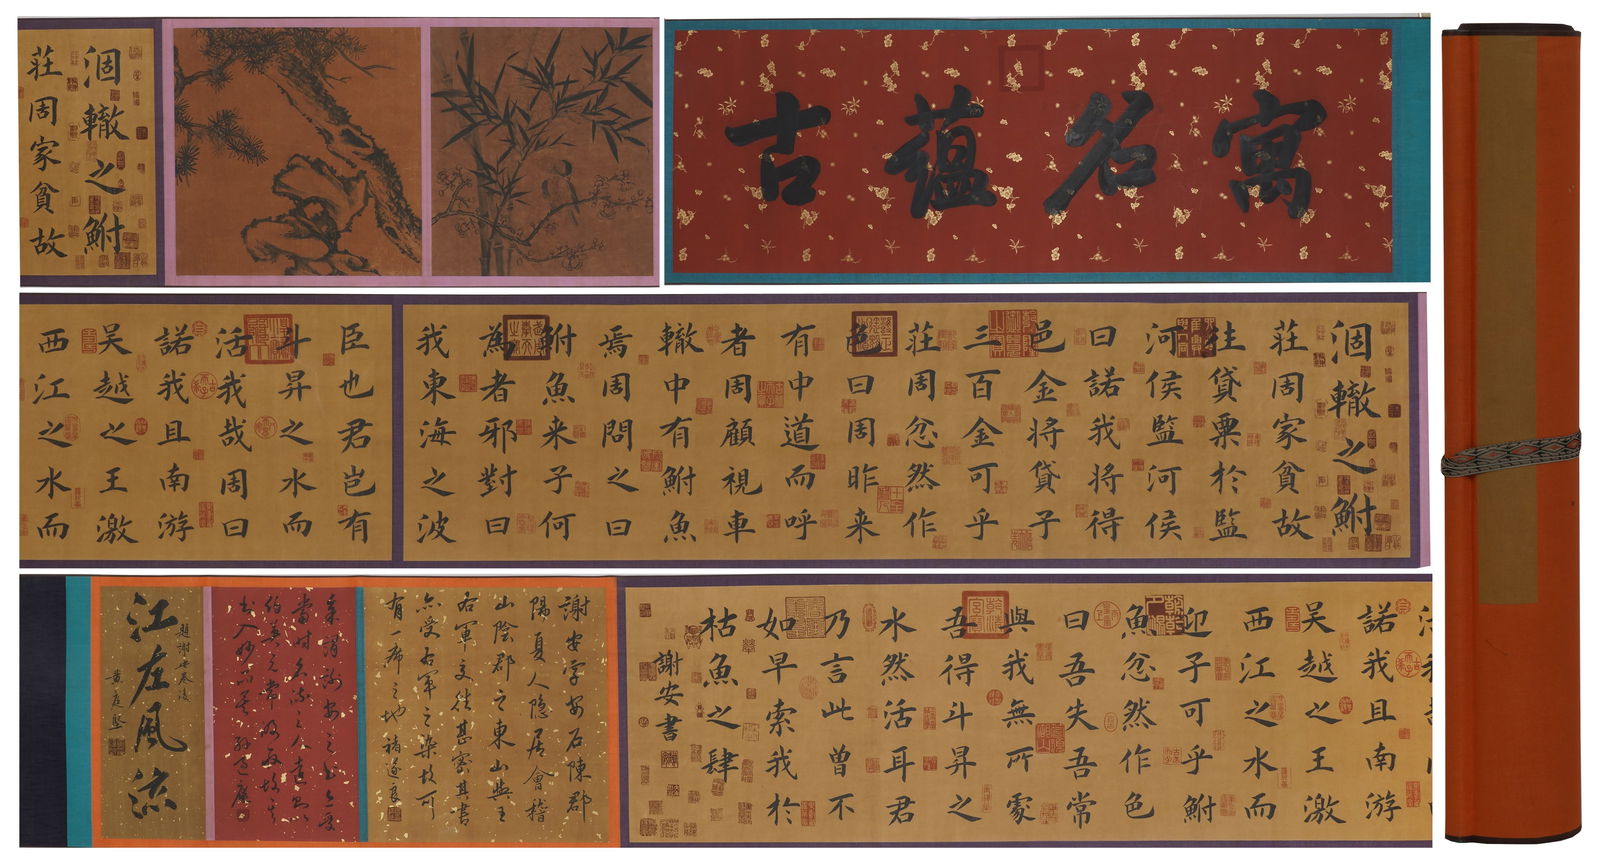 寓名蘊古
涸轍之鮒
莊周家貧故
涸轍之鮒
莊周家貧故
往貸粟於監
河侯監河侯
曰諾我將得
邑金將貸子
三百金可乎
莊周忿然作
色曰周昨来
有中道而呼
者周顧視車
轍中有鮒魚
焉周問之曰
鮒魚来子何
為者邪對曰
我東海之波
臣也君岂有
斗昇之水而
活我哉周曰
諾我且南游
吳越之王激
西江之水而
諾我且南游
吳越之王激
西江之水而
迎子可乎鮒
魚忿然作色
曰吾失吾常
與我無所處
吾得斗昇之
水然活耳君
乃言此曾不
如早索我於
枯魚之肆
謝安書
謝安字安石陳郡
陽夏人隐居會稽
山陰郡之東山與王
右軍交往甚密其書
亦受右軍之染故可
有一席之地褚遂良
題謝安卷後
江左風流
黄庭堅